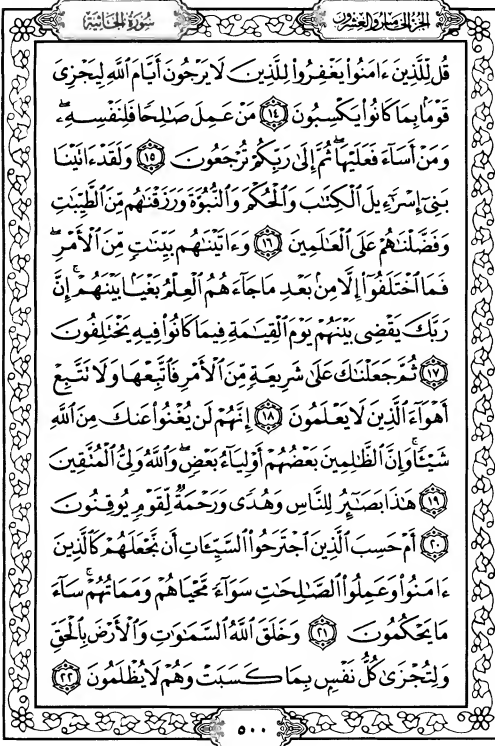 سُورَةُ الجَاثِيَةِ
الجُزءُ الخَامِسُ وَالعِشْرُونَ
قُل لِّلَّذِينَ ءَامَنُوا۟ يَغْفِرُوا۟ لِلَّذِينَ لَا يَرْجُونَ أَيَّامَ ٱللَّهِ لِيَجْزِىَ
قَوْمًۢا بِمَا كَانُوا۟ يَكْسِبُونَ ١٤ مَنْ عَمِلَ صَٰلِحًا فَلِنَفْسِهِۦ ۖ
وَمَنْ أَسَآءَ فَعَلَيْهَا ۖ ثُمَّ إِلَىٰ رَبِّكُمْ تُرْجَعُونَ ١٥ وَلَقَدْ ءَاتَيْنَا
بَنِىٓ إِسْرَٰٓءِيلَ ٱلْكِتَٰبَ وَٱلْحُكْمَ وَٱلنُّبُوَّةَ وَرَزَقْنَٰهُم مِّنَ ٱلطَّيِّبَٰتِ
وَفَضَّلْنَٰهُمْ عَلَى ٱلْعَٰلَمِينَ ١٦ وَءَاتَيْنَٰهُم بَيِّنَٰتٍ مِّنَ ٱلْأَمْرِ ۖ
فَمَا ٱخْتَلَفُوٓا۟ إِلَّا مِنۢ بَعْدِ مَا جَآءَهُمُ ٱلْعِلْمُ بَغْيًۢا بَيْنَهُمْ ۚ إِنَّ
رَبَّكَ يَقْضِى بَيْنَهُمْ يَوْمَ ٱلْقِيَٰمَةِ فِيمَا كَانُوا۟ فِيهِ يَخْتَلِفُونَ
١٧ ثُمَّ جَعَلْنَٰكَ عَلَىٰ شَرِيعَةٍ مِّنَ ٱلْأَمْرِ فَٱتَّبِعْهَا وَلَا تَتَّبِعْ
أَهْوَآءَ ٱلَّذِينَ لَا يَعْلَمُونَ ١٨ إِنَّهُمْ لَن يُغْنُوا۟ عَنكَ مِنَ ٱللَّهِ
شَيْـًٔا ۚ وَإِنَّ ٱلظَّٰلِمِينَ بَعْضُهُمْ أَوْلِيَآءُ بَعْضٍ ۖ وَٱللَّهُ وَلِىُّ ٱلْمُتَّقِينَ
١٩ هَٰذَا بَصَٰٓئِرُ لِلنَّاسِ وَهُدًى وَرَحْمَةٌ لِّقَوْمٍ يُوقِنُونَ
٢٠ أَمْ حَسِبَ ٱلَّذِينَ ٱجْتَرَحُوا۟ ٱلسَّيِّـَٔاتِ أَن نَّجْعَلَهُمْ كَٱلَّذِينَ
ءَامَنُوا۟ وَعَمِلُوا۟ ٱلصَّٰلِحَٰتِ سَوَآءً مَّحْيَاهُمْ وَمَمَاتُهُمْ ۚ سَآءَ
مَا يَحْكُمُونَ ٢١ وَخَلَقَ ٱللَّهُ ٱلسَّمَٰوَٰتِ وَٱلْأَرْضَ بِٱلْحَقِّ
وَلِتُجْزَىٰ كُلُّ نَفْسٍۭ بِمَا كَسَبَتْ وَهُمْ لَا يُظْلَمُونَ ٢٢
٥٠٠